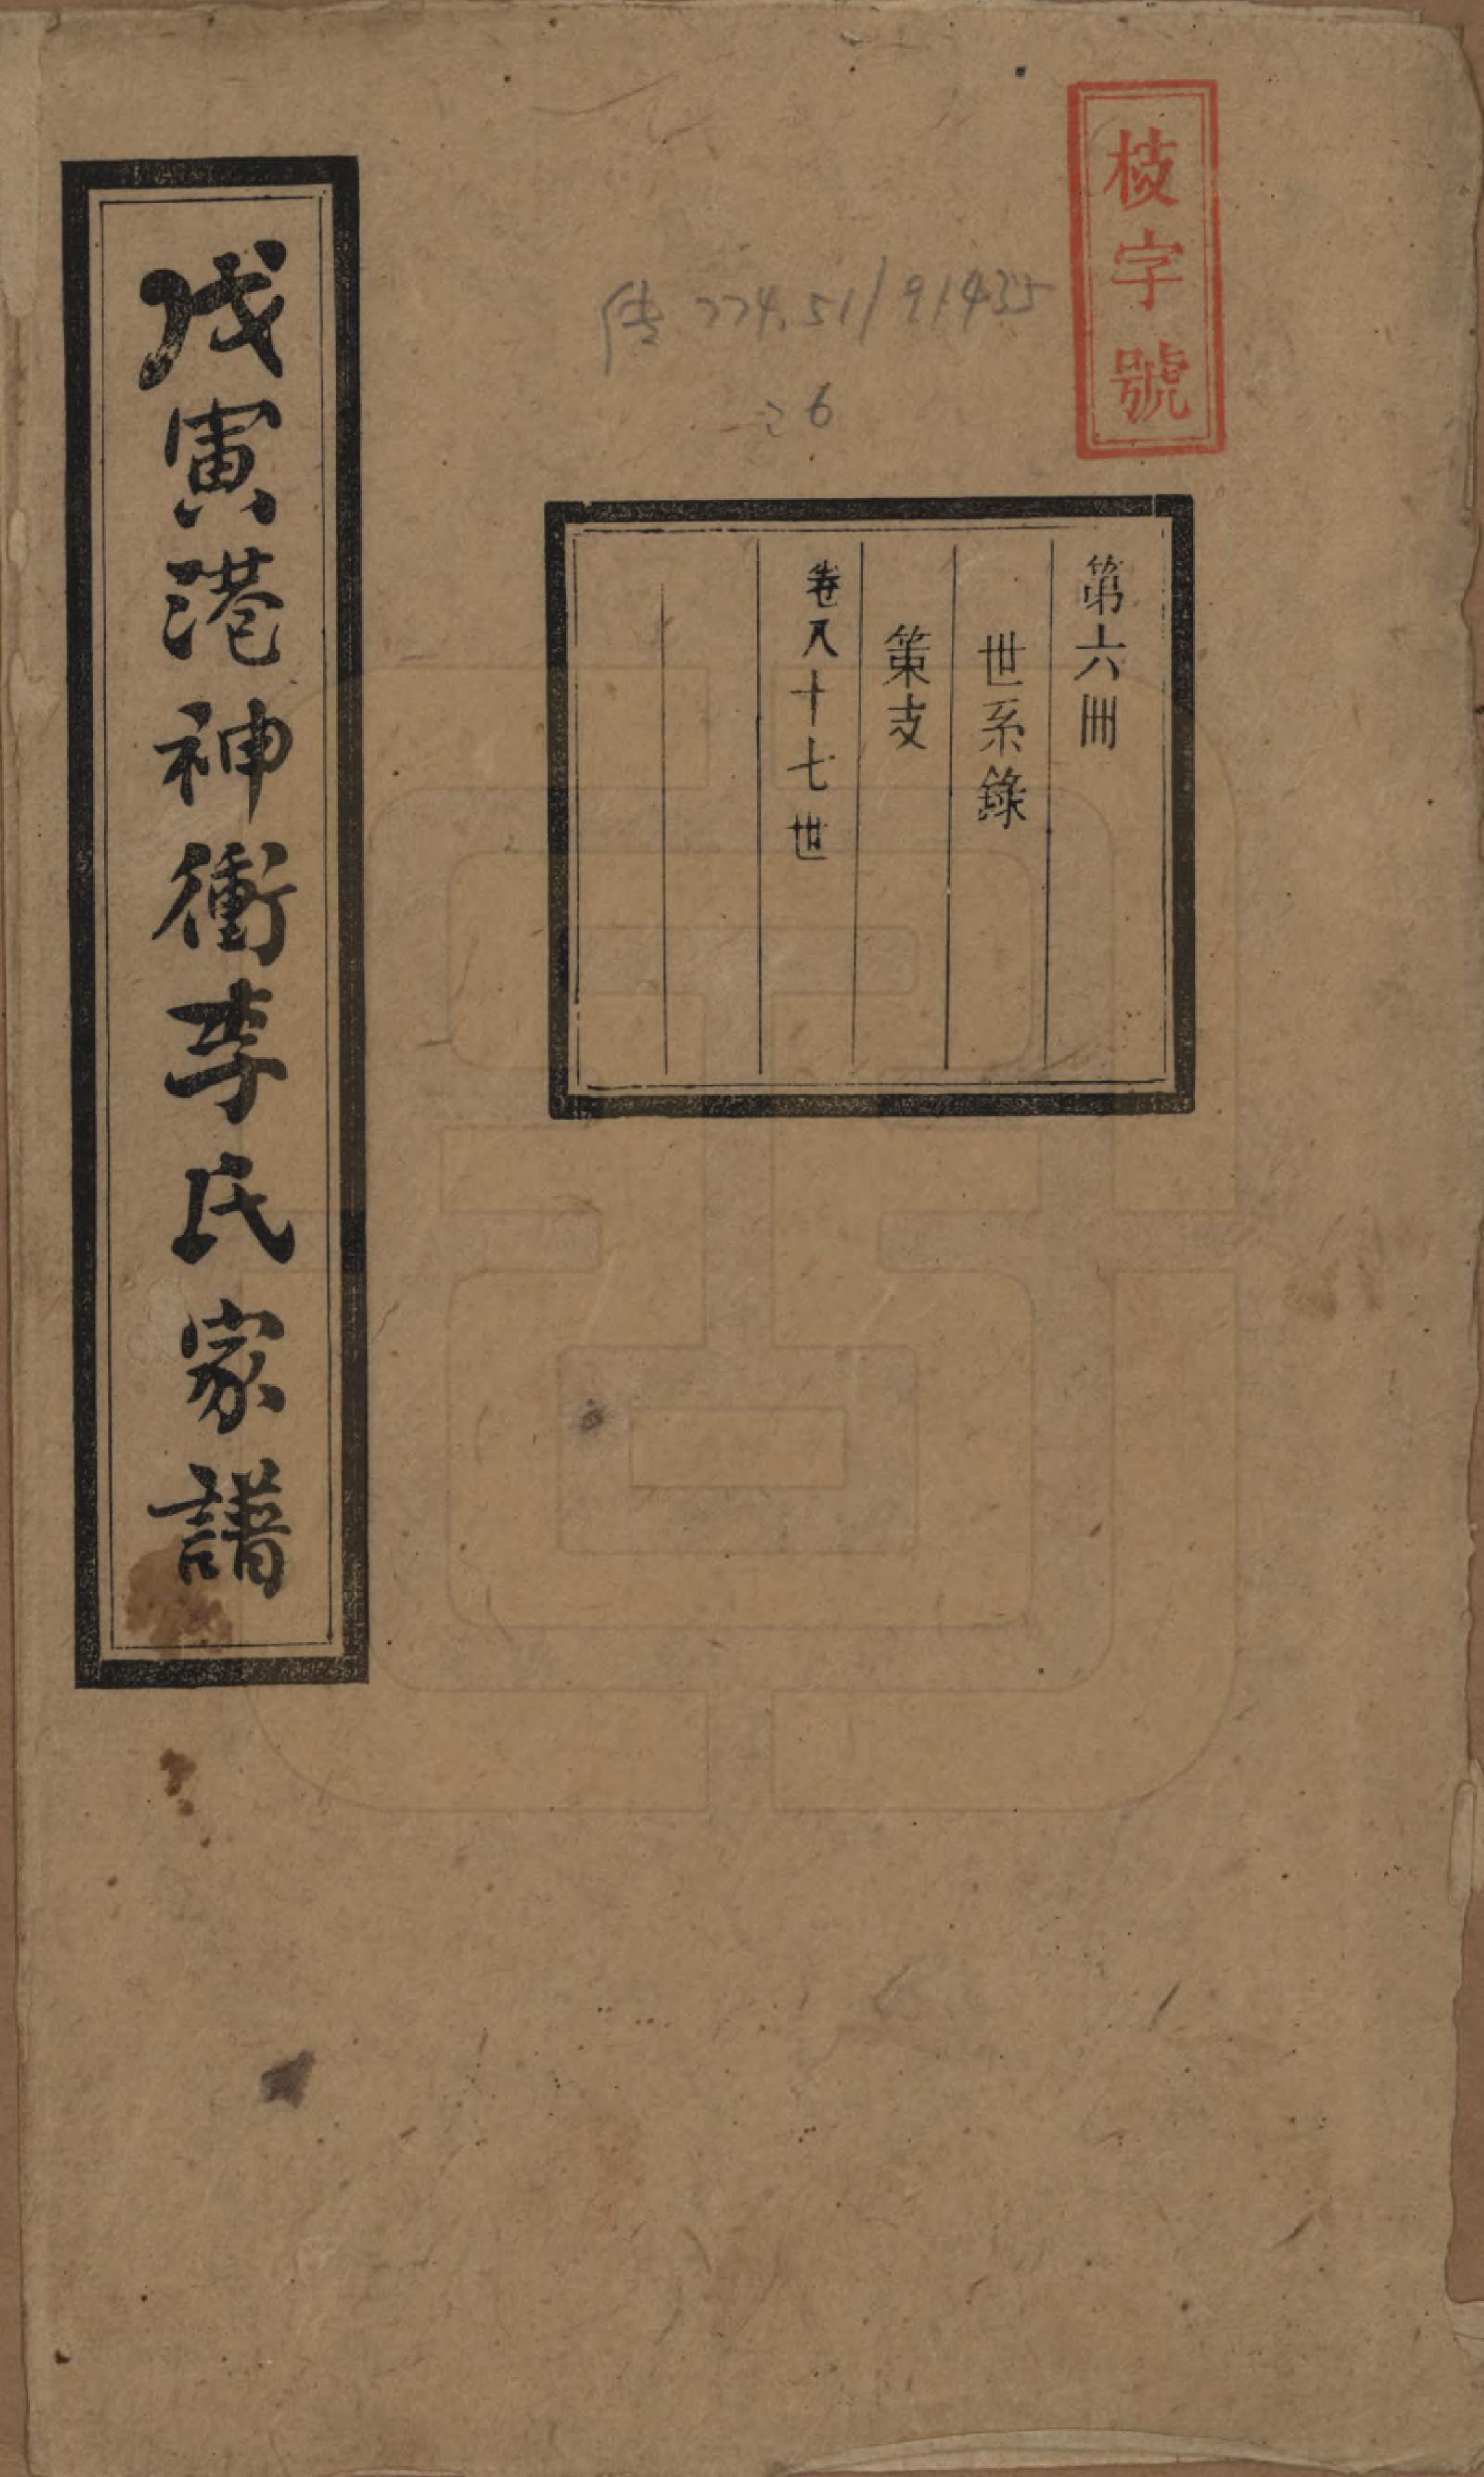 枝字號
传 774.51/91435
:6
第六冊
世系錄
策支
卷八十七世
戊寅港神衝李氏家譜